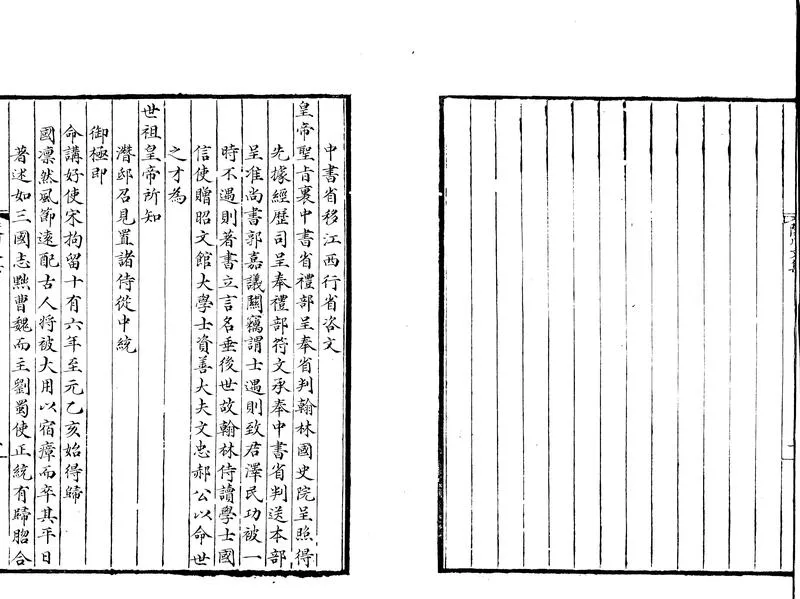 中書省移江西行省咨文
皇帝聖旨裏中書省禮部呈奉省判翰林國史院呈照得
先據經歷司呈奉禮部符文承奉中書省判送本部
呈准尚書郭嘉議關竊謂士遇則致君澤民功被一
時不遇則著書立言名垂後世故翰林侍讀學士國
信使贈昭文館大學士資善大夫文忠郝公以命世
之才為
世祖皇帝所知
潛邸召見置諸侍從中統
御極即
命講好使宋拘留十有六年至元乙亥始得歸
國凛然風節遠配古人將被大用以宿瘴而卒其平日
著述如三國志黜曹魏而主劉蜀使正統有歸脗合